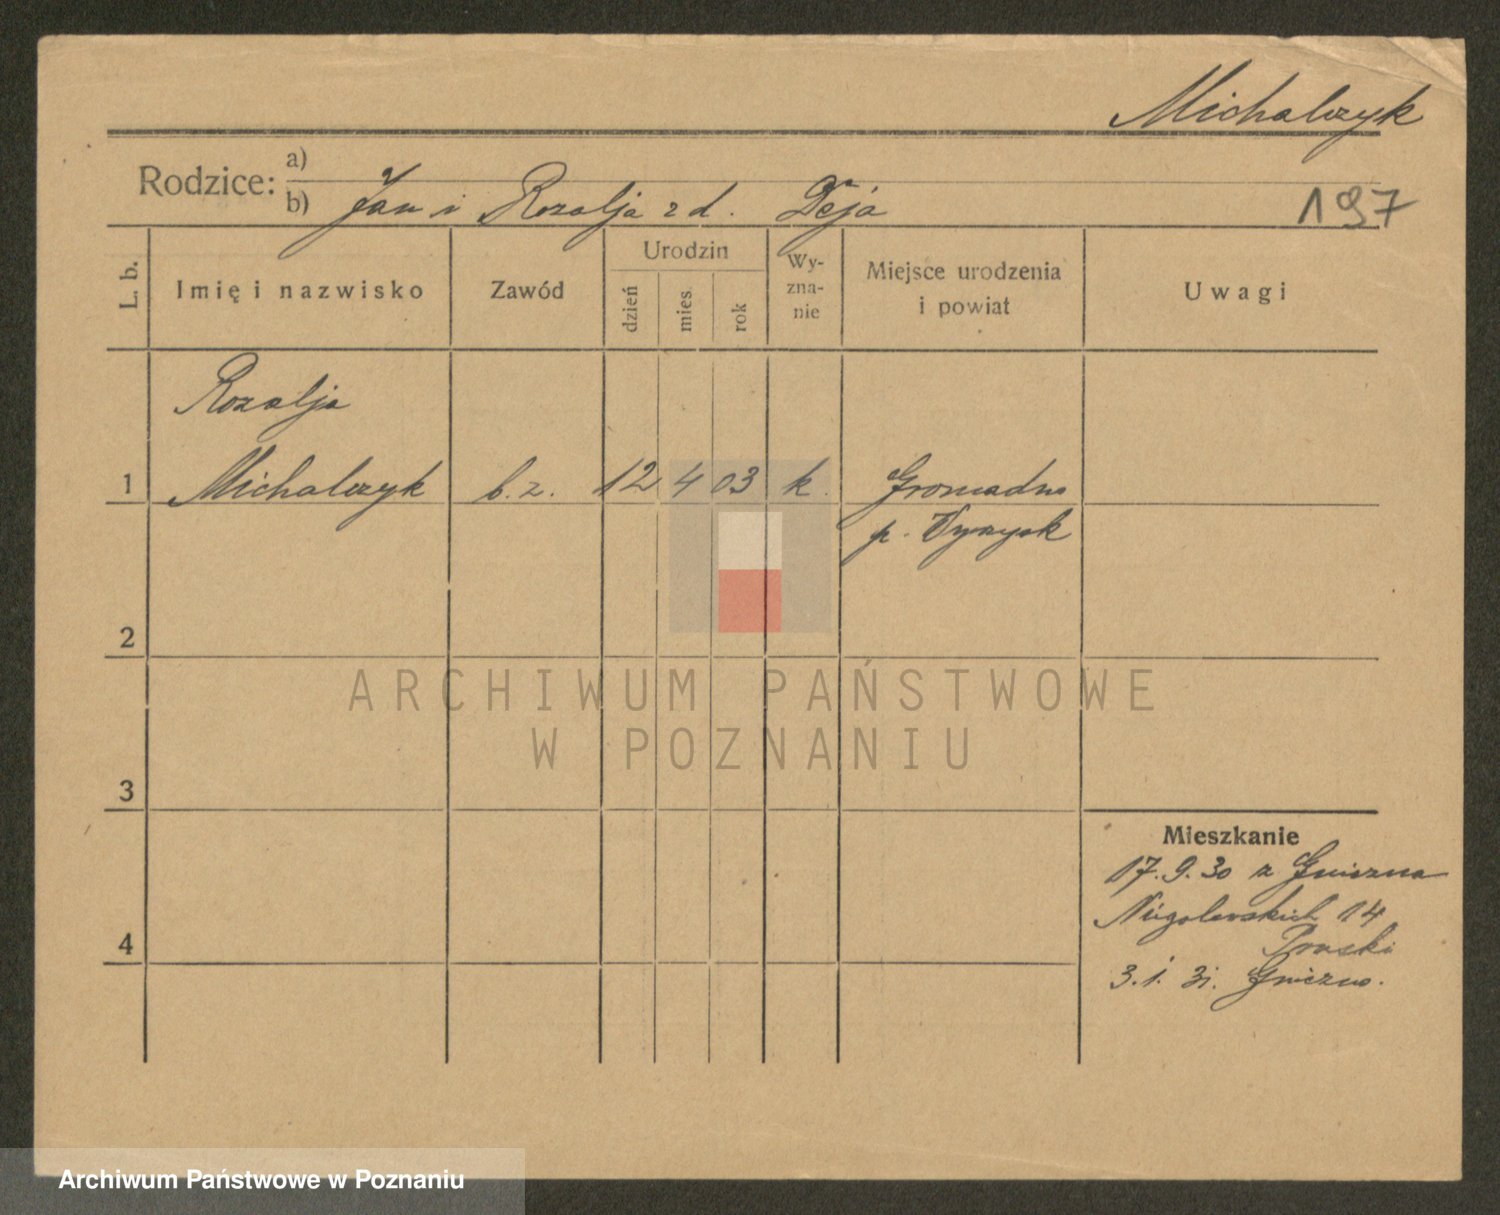 Michalczyk
Rodzice: a)
b) Jan i Rozalja z d. Deja
197
L. b.
Imię i nazwisko
Zawód
Urodzin
dzień
mies.
rok
Wy-
zna-
nie
Miejsce urodzenia
i powiat
Uwagi
Rozalja
1 Michalczyk b. z. 12 4 03 k. Gromadno
p. Wyrzysk
2
3
4
Mieszkanie
17.9.30 z Gniezna
14
3.1.31. Gniezno.
ARCHIWUM PAŃSTWOWE
W POZNANIU
Archiwum Państwowe w Poznaniu